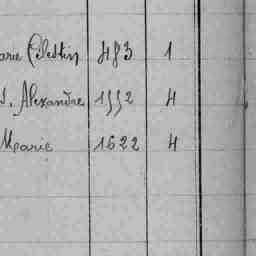 arie Célestin 483 1
J. Alexandre 1552 4
Marie 1622 4